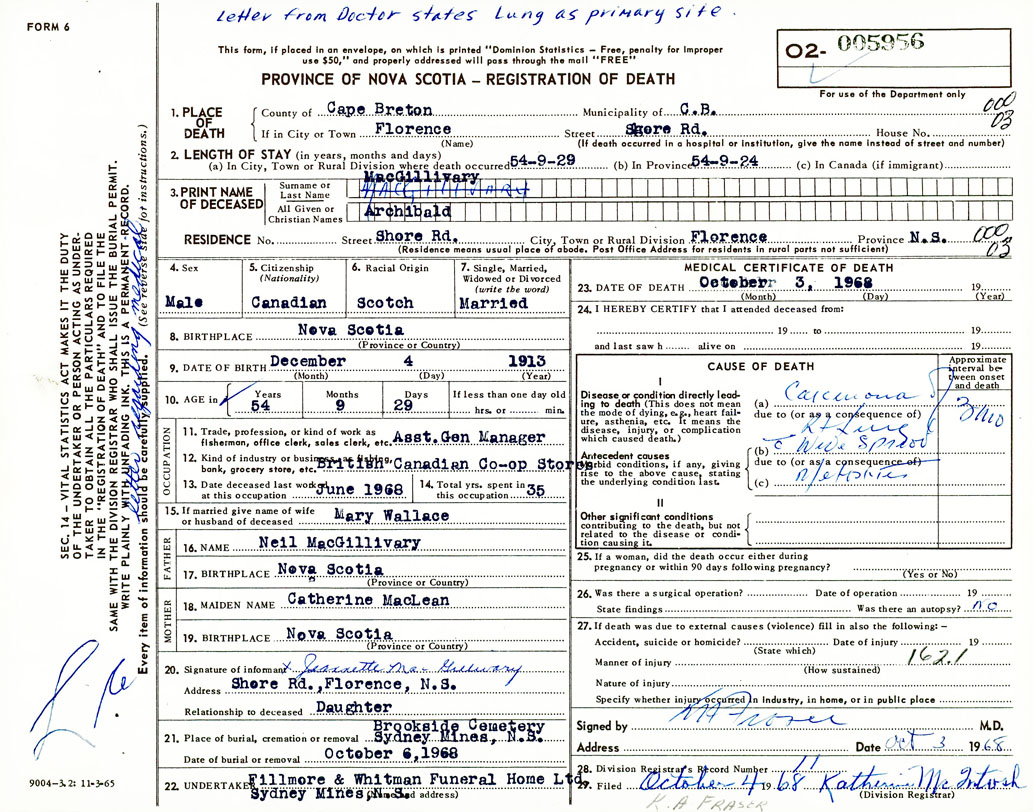 Letter from Doctor states Lung as primary site.
FORM 6
This form, if placed in an envelope, on which is printed "Dominion Statistics – Free, penalty for improper
use $50," and properly addressed will pass through the mail "FREE"
PROVINCE OF NOVA SCOTIA – REGISTRATION OF DEATH
O2- 005956
For use of the Department only
1. PLACE OF DEATH County of Cape Breton Municipality of C.B. 000
If in City or Town Florence Street Shore Rd. House No. 03
(Name) (If death occurred in a hospital or institution, give the name instead of street and number)
2. LENGTH OF STAY (in years, months and days)
(a) In City, Town or Rural Division where death occurred 54-9-29 (b) In Province 54-9-24 (c) In Canada (if immigrant)
MacGillivary
3. PRINT NAME OF DECEASED Surname or Last Name MACGILLIVARY
All Given or Christian Names Archibald
RESIDENCE No. Street Shore Rd. City, Town or Rural Division Florence Province N.S. 000 03
(Residence means usual place of abode. Post Office Address for residents in rural parts not sufficient)
4. Sex Male
5. Citizenship (Nationality) Canadian
6. Racial Origin Scotch
7. Single, Married, Widowed or Divorced (write the word) Married
8. BIRTHPLACE Nova Scotia
(Province or Country)
9. DATE OF BIRTH December 4 1913
(Month) (Day) (Year)
10. AGE in Years 54 Months 9 Days 29 If less than one day old hrs. or min.
OCCUPATION
11. Trade, profession, or kind of work as
fisherman, office clerk, sales clerk, etc. Asst.Gen Manager
12. Kind of industry or business, as fishing,
bank, grocery store, etc. British Canadian Co-op Stores
13. Date deceased last worked at this occupation June 1968
14. Total yrs. spent in this occupation 35
15. If married give name of wife
or husband of deceased Mary Wallace
FATHER
16. NAME Neil MacGillivary
17. BIRTHPLACE Nova Scotia
(Province or Country)
MOTHER
18. MAIDEN NAME Catherine MacLean
19. BIRTHPLACE Nova Scotia
(Province or Country)
20. Signature of informant x Jeannette MacGillivary
Address Shore Rd.,Florence, N.S.
Relationship to deceased Daughter
Brookside Cemetery
21. Place of burial, cremation or removal Sydney Mines, N.S.
Date of burial or removal October 6,1968
22. UNDERTAKER Fillmore & Whitman Funeral Home Ltd.
Sydney Mines,N.S. (Name and address)
MEDICAL CERTIFICATE OF DEATH
23. DATE OF DEATH October 3, 1968 19
(Month) (Day) (Year)
24. I HEREBY CERTIFY that I attended deceased from:
19 to 19
and last saw h alive on 19
CAUSE OF DEATH
Approximate interval between onset and death
I
Disease or condition directly leading to death (This does not mean the mode of dying, e.g., heart failure, asthenia, etc. It means the disease, injury, or complication which caused death.)
(a) Carcinoma 3 mo
due to (or as a consequence of)
Rt Lung
Antecedent causes
Morbid conditions, if any, giving rise to the above cause, stating the underlying condition last.
(b) c Wide Spread
due to (or as a consequence of)
(c)
II
Other significant conditions
contributing to the death, but not related to the disease or condition causing it.
25. If a woman, did the death occur either during
pregnancy or within 90 days following pregnancy?
(Yes or No)
26. Was there a surgical operation? Date of operation 19
State findings Was there an autopsy? no
27. If death was due to external causes (violence) fill in also the following: –
Accident, suicide or homicide? Date of injury 19
(State which)
Manner of injury 162.1
(How sustained)
Nature of injury
Specify whether injury occurred in industry, in home, or in public place
Signed by KA Fraser M.D.
Address Date Oct 3 1968
28. Division Registrar's Record Number 11
29. Filed October 4 1968 Katherine McIntosh
(Division Registrar)
K.A FRASER
SEC. 14 – VITAL STATISTICS ACT MAKES IT THE DUTY
OF THE UNDERTAKER OR PERSON ACTING AS UNDER-
TAKER TO OBTAIN ALL THE PARTICULARS REQUIRED
IN THE "REGISTRATION OF DEATH" AND TO FILE THE
SAME WITH THE DIVISION REGISTRAR WHO SHALL ISSUE THE BURIAL PERMIT.
WRITE PLAINLY WITH UNFADING INK. THIS IS A PERMANENT RECORD.
Every item of information should be carefully supplied. (See reverse side for instructions.)
letter regarding medical
9004-3.2: 11-3-65